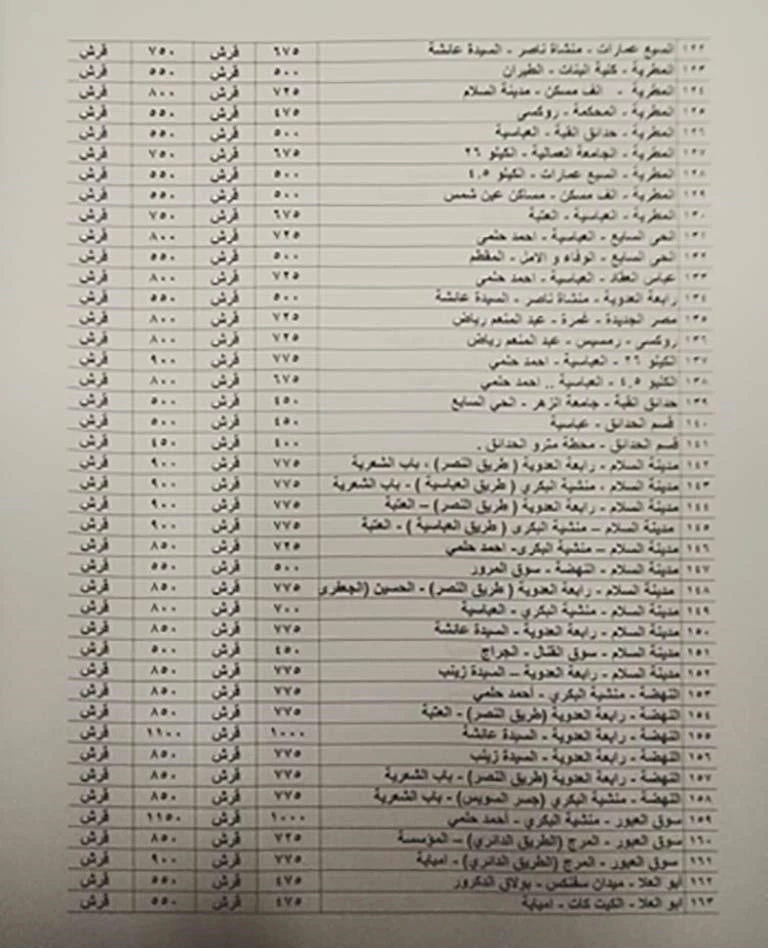 ١٢٢ السبع عمارات - منشاة ناصر - السيدة عائشة ٦٧٥ قرش ٧٥٠ قرش
١٢٣ المطرية - كلية البنات - الطيران ٥٠٠ قرش ٥٥٠ قرش
١٢٤ المطرية - الف مسكن - مدينة السلام ٧٢٥ قرش ٨٠٠ قرش
١٢٥ المطرية - المحكمة - روكسي ٤٧٥ قرش ٥٥٠ قرش
١٢٦ المطرية - حدائق القبة - العباسية ٥٠٠ قرش ٥٥٠ قرش
١٢٧ المطرية - الجامعة العمالية - الكيلو ٢٦ ٦٧٥ قرش ٧٥٠ قرش
١٢٨ المطرية - السبع عمارات - الكيلو ٤.٥ ٥٠٠ قرش ٥٥٠ قرش
١٢٩ المطرية - الف مسكن - مساكن عين شمس ٥٠٠ قرش ٥٥٠ قرش
١٣٠ المطرية - العباسية - العتبة ٦٧٥ قرش ٧٥٠ قرش
١٣١ الحى السابع - العباسية - احمد حلمى ٧٢٥ قرش ٨٠٠ قرش
١٣٢ الحى السابع - الوفاء و الامل - المقطم ٥٠٠ قرش ٥٥٠ قرش
١٣٣ عباس العقاد - العباسية - احمد حلمي ٧٢٥ قرش ٨٠٠ قرش
١٣٤ رابعة العدوية - منشاة ناصر - السيدة عائشة ٥٠٠ قرش ٥٥٠ قرش
١٣٥ مصر الجديدة - غمرة - عبد المنعم رياض ٧٢٥ قرش ٨٠٠ قرش
١٣٦ روكسي - رمسيس - عبد المنعم رياض ٧٢٥ قرش ٨٠٠ قرش
١٣٧ الكيلو ٢٦ - العباسية - احمد حلمي ٧٧٥ قرش ٩٠٠ قرش
١٣٨ الكليو ٤.٥ - العباسية .. احمد حلمي ٦٧٥ قرش ٨٠٠ قرش
١٣٩ حدائق القبة - جامعة الزهر - الحي السابع ٤٥٠ قرش ٥٠٠ قرش
١٤٠ قسم الحدائق - عباسية ٤٥٠ قرش ٥٠٠ قرش
١٤١ قسم الحدائق - محطة مترو الحدائق . ٤٠٠ قرش ٤٥٠ قرش
١٤٢ مدينة السلام - رابعة العدوية ( طريق النصر) - باب الشعرية ٧٧٥ قرش ٩٠٠ قرش
١٤٣ مدينة السلام - منشية البكري ( طريق العباسية ) - باب الشعرية ٧٧٥ قرش ٩٠٠ قرش
١٤٤ مدينة السلام - رابعة العدوية ( طريق النصر) – العتبة ٧٧٥ قرش ٩٠٠ قرش
١٤٥ مدينة السلام – منشية البكرى ( طريق العباسية ) - العتبة ٧٧٥ قرش ٩٠٠ قرش
١٤٦ مدينة السلام – منشية البكرى- احمد حلمي ٧٢٥ قرش ٨٥٠ قرش
١٤٧ مدينة السلام - النهضة - سوق المرور ٥٠٠ قرش ٥٥٠ قرش
١٤٨ مدينة السلام - رابعة العدوية ( طريق النصر) - الحسين (الجعفرى ٧٧٥ قرش ٨٥٠ قرش
١٤٩ مدينة السلام - منشية البكري - العباسية ٧٠٠ قرش ٨٠٠ قرش
١٥٠ مدينة السلام - رابعة العدوية - السيدة عائشة ٧٧٥ قرش ٨٥٠ قرش
١٥١ مدينة السلام - سوق القنال - الجراج ٤٥٠ قرش ٥٠٠ قرش
١٥٢ مدينة السلام - رابعة العدوية – السيدة زينب ٧٧٥ قرش ٨٥٠ قرش
١٥٣ النهضة - منشية البكري - أحمد حلمي ٧٧٥ قرش ٨٥٠ قرش
١٥٤ النهضة - رابعة العدوية (طريق النصر) - العتبة ٧٧٥ قرش ٨٥٠ قرش
١٥٥ النهضة - رابعة العدوية - السيدة عائشة ١٠٠٠ قرش ١١٠٠ قرش
١٥٦ النهضة - رابعة العدوية - السيدة زينب ٧٧٥ قرش ٨٥٠ قرش
١٥٧ النهضة - رابعة العدوية (طريق النصر) - باب الشعرية ٧٧٥ قرش ٨٥٠ قرش
١٥٨ النهضة - منشية البكري (جسر السويس) - باب الشعرية ٧٧٥ قرش ٨٥٠ قرش
١٥٩ سوق العبور - منشية البكري - أحمد حلمي ١٠٠٠ قرش ١١٥٠ قرش
١٦٠ سوق العبور - المرج (الطريق الدائري) – المؤسسة ٧٢٥ قرش ٨٥٠ قرش
١٦١ سوق العبور - المرج (الطريق الدائري) - امبابة ٧٧٥ قرش ٩٠٠ قرش
١٦٢ ابو العلا - ميدان سفنكس - بولاق الدكرور ٤٧٥ قرش ٥٥٠ قرش
١٦٣ ابو العلا - الكيت كات - امبابة ٤٧٥ قرش ٥٥٠ قرش